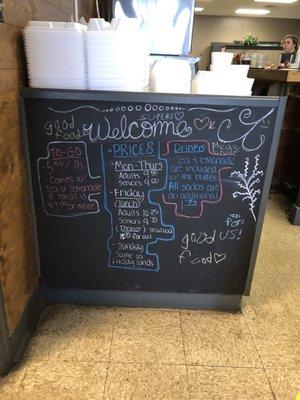 good food
SUPER!
Welcome
TO-GO
Comes w/
Tea or lemonade
if total is
or more
PRICES
Mon-Thurs
Adults
Seniors
Friday
(lunch)
Adults
Seniors
(Dinner) seafood
for all
Sunday
Same as
Friday lunch
Drinks
Tea & lemonade
are included
w/ the buffet
All sodas are
an additional
good
food
FOR
US!